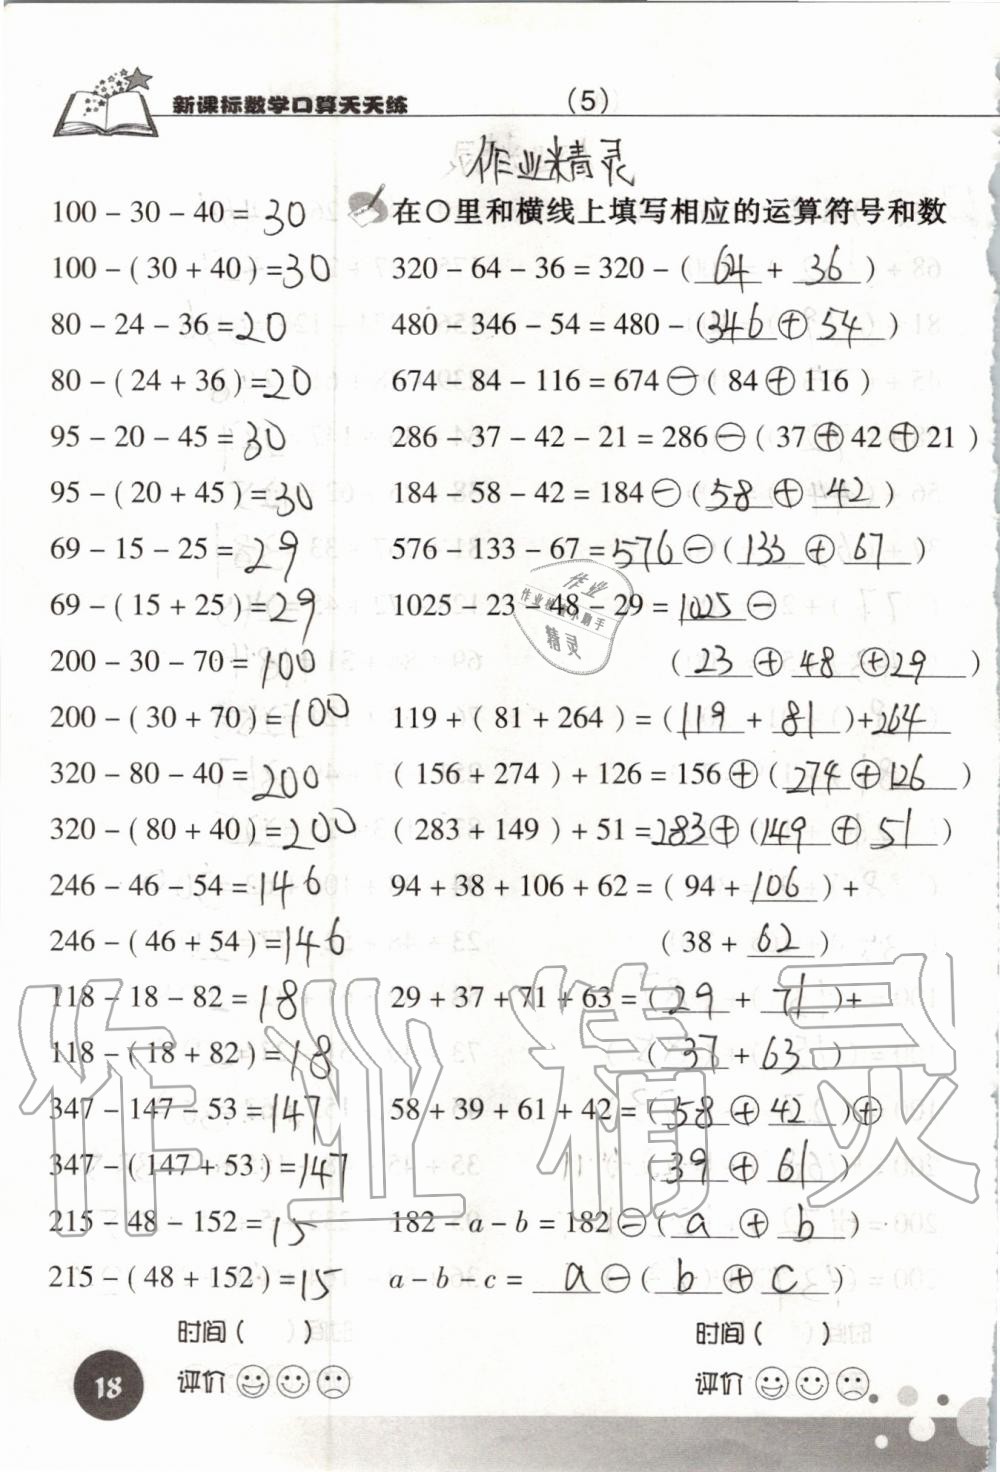 新课标数学口算天天练
(5)
作业精灵
100 - 30 - 40 = 30
100 - ( 30 + 40 ) = 30
80 - 24 - 36 = 20
80 - ( 24 + 36 ) = 20
95 - 20 - 45 = 30
95 - ( 20 + 45 ) = 30
69 - 15 - 25 = 29
69 - ( 15 + 25 ) = 29
200 - 30 - 70 = 100
200 - ( 30 + 70 ) = 100
320 - 80 - 40 = 200
320 - ( 80 + 40 ) = 200
246 - 46 - 54 = 146
246 - ( 46 + 54 ) = 146
118 - 18 - 82 = 18
118 - ( 18 + 82 ) = 18
347 - 147 - 53 = 147
347 - ( 147 + 53 ) = 147
215 - 48 - 152 = 15
215 - ( 48 + 152 ) = 15
时间 (      )
评价
在○里和横线上填写相应的运算符号和数
320 - 64 - 36 = 320 - ( 64 + 36 )
480 - 346 - 54 = 480 - ( 346 ⊕ 54 )
674 - 84 - 116 = 674 ⊖ ( 84 ⊕ 116 )
286 - 37 - 42 - 21 = 286 ⊖ ( 37 ⊕ 42 ⊕ 21 )
184 - 58 - 42 = 184 ⊖ ( 58 ⊕ 42 )
576 - 133 - 67 = 576 ⊖ ( 133 ⊕ 67 )
1025 - 23 - 48 - 29 = 1025 ⊖
( 23 ⊕ 48 ⊕ 29 )
119 + ( 81 + 264 ) = ( 119 + 81 ) + 264
( 156 + 274 ) + 126 = 156 ⊕ ( 274 ⊕ 126 )
( 283 + 149 ) + 51 = 283 ⊕ ( 149 ⊕ 51 )
94 + 38 + 106 + 62 = ( 94 + 106 ) +
( 38 + 62 )
29 + 37 + 71 + 63 = ( 29 + 71 ) +
( 37 + 63 )
58 + 39 + 61 + 42 = ( 58 ⊕ 42 ) ⊕
( 39 ⊕ 61 )
182 - a - b = 182 ⊖ ( a ⊕ b )
a - b - c = a ⊖ ( b ⊕ c )
时间 (      )
评价
18
作业
精灵
作业精灵